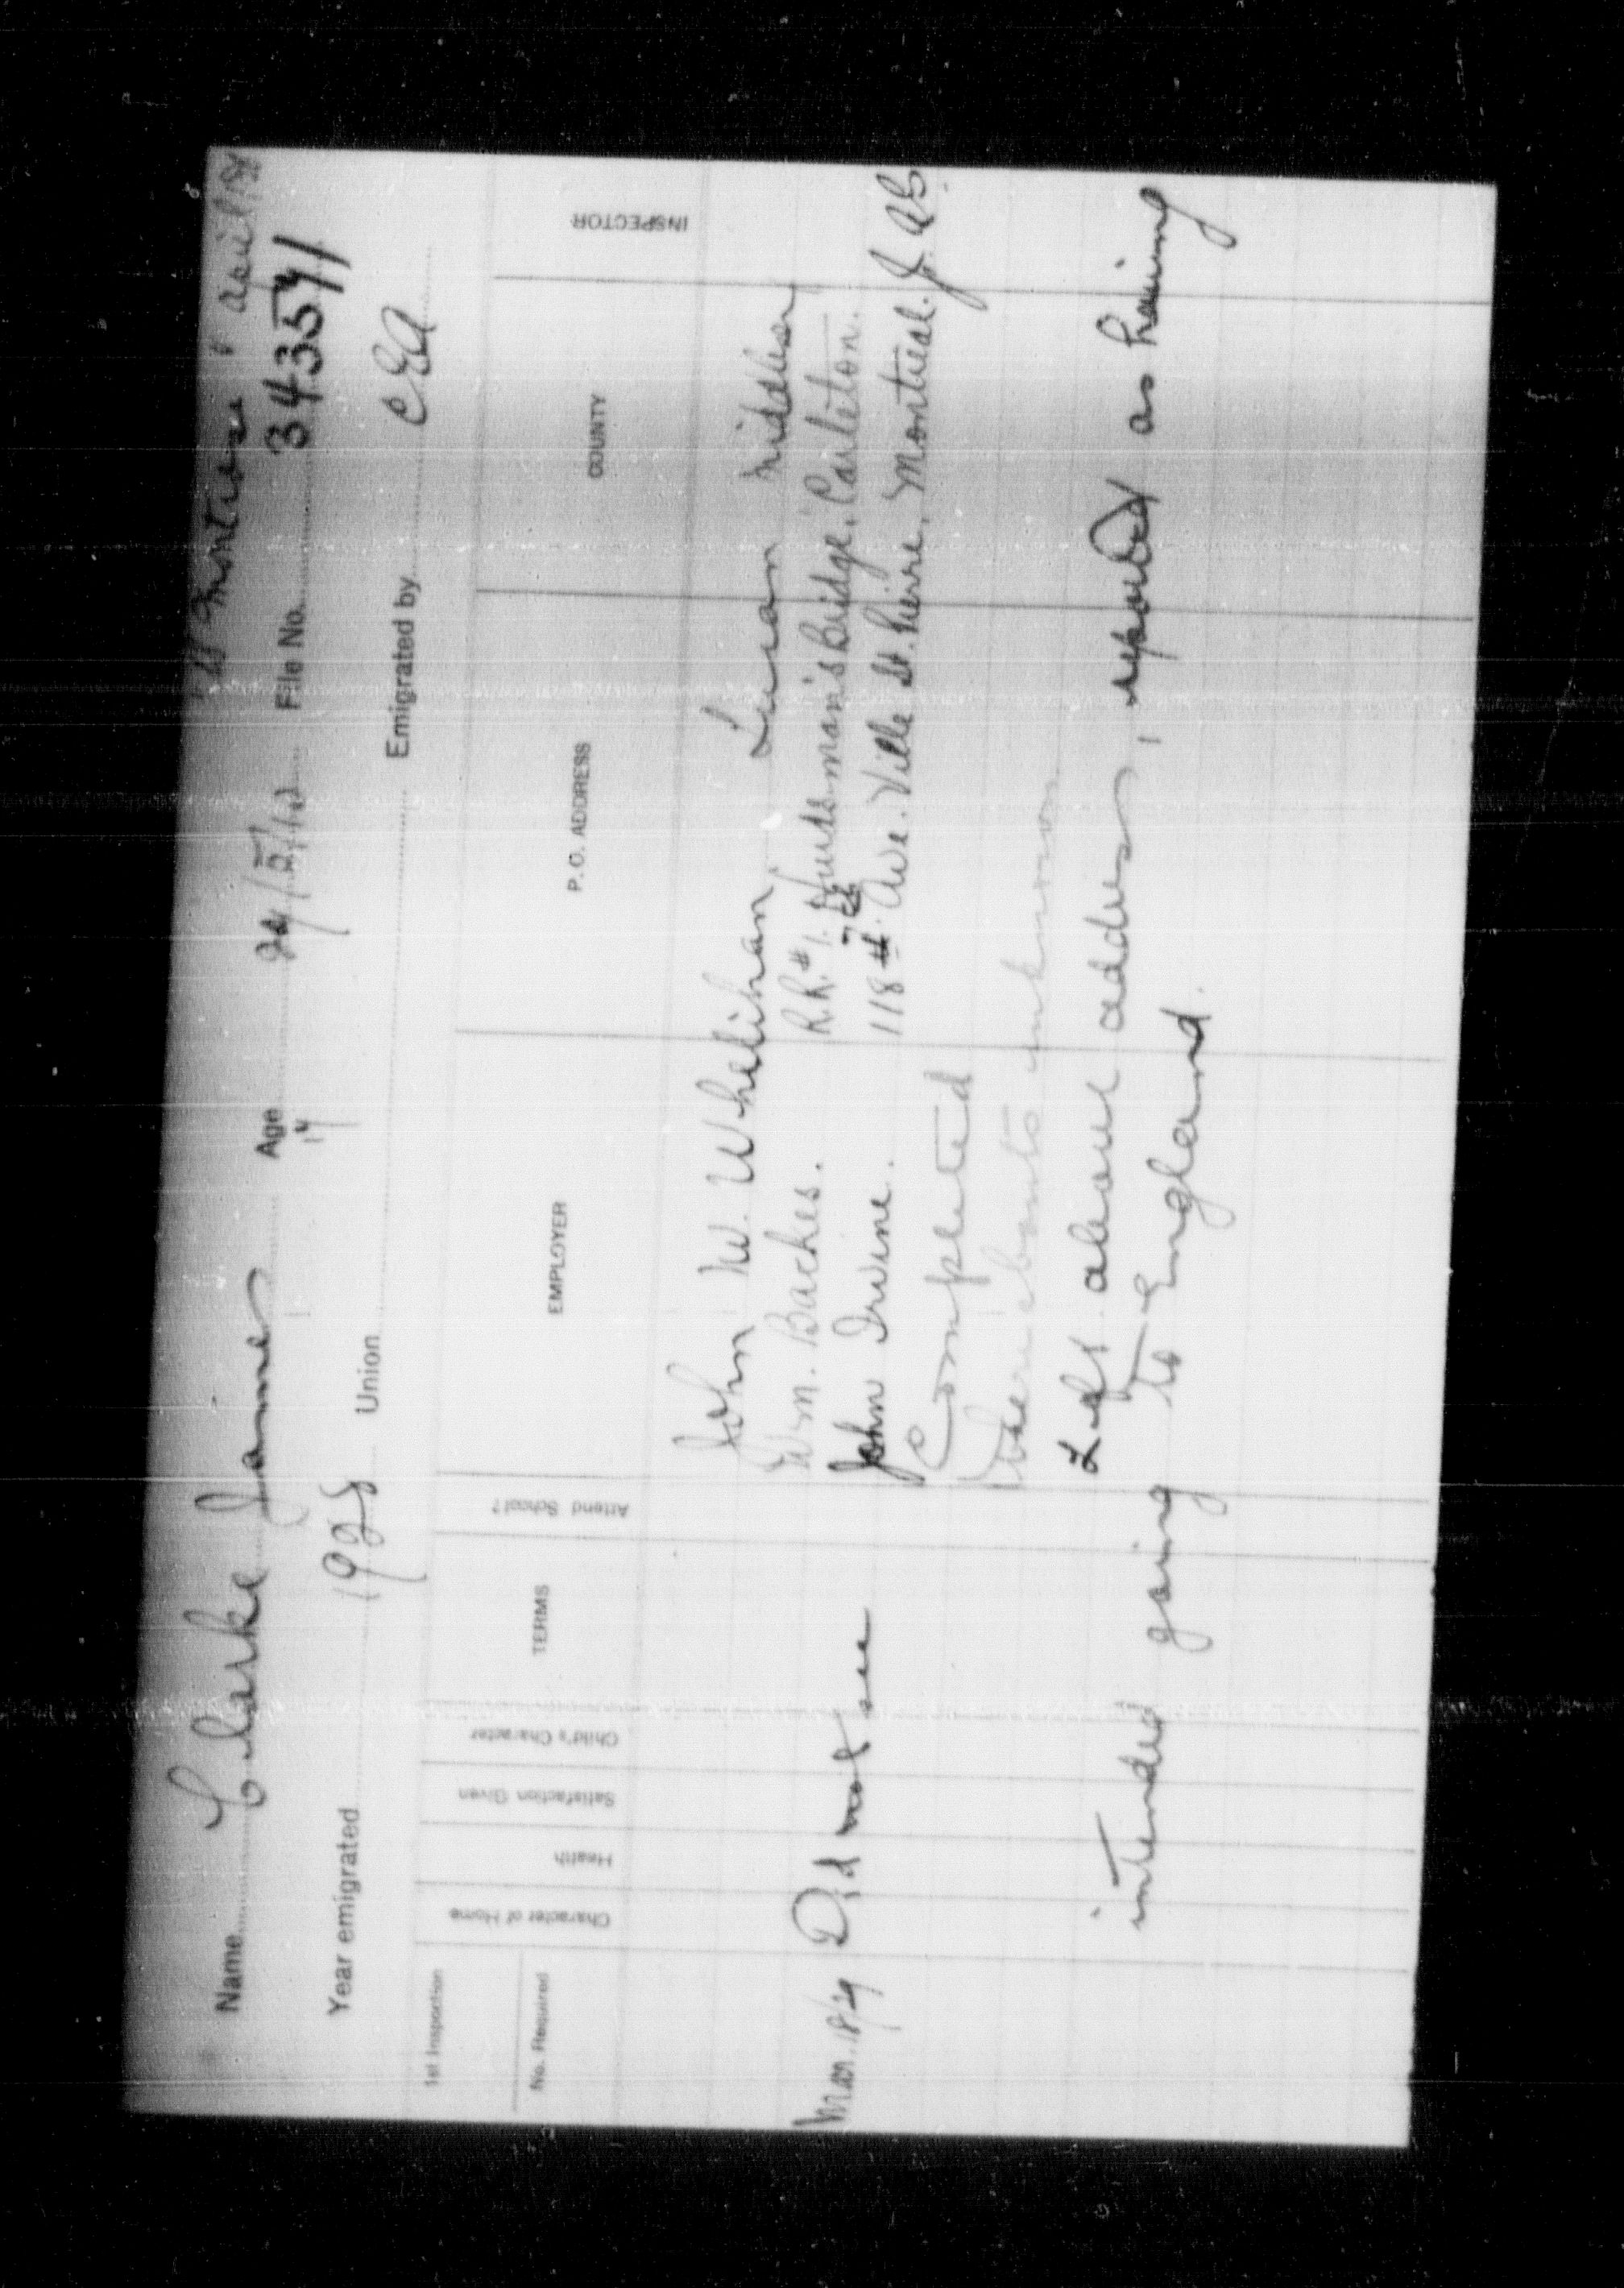 SS Montrose April 28
Name Clarke James Age 14 24/5/12 File No. 343541
Year emigrated 1928 Union Emigrated by CEA
1st Inspection
No. Required
Character of Home
Health
Satisfaction Given
Child's Character
TERMS
Attend School?
EMPLOYER
P. O. ADDRESS
COUNTY
INSPECTOR
John W. Whelihan, Lucan Middlesex
Wm. Backes. R.R.#1. Hurdsman's Bridge, Carleton.
Mar. 18/29 Did not see John Irvine. 118 7th Ave. Ville St. Pierre, Montreal.
Completed
Whereabouts unknown
Left above address, reported as having
intended going to England.